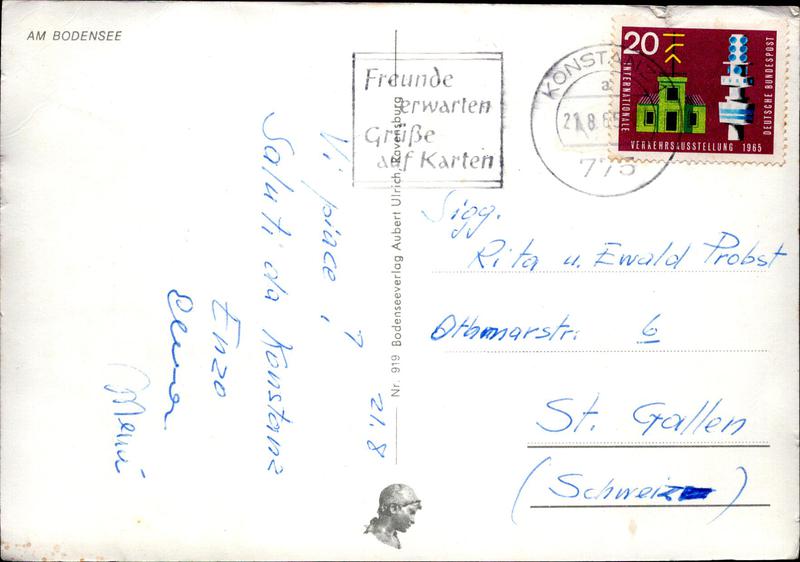 AM BODENSEE
Freunde
erwarten
Grüße
auf Karten
KONSTANZ
a
21.8.65
775
20
INTERNATIONALE
VERKEHRSAUSSTELLUNG 1965
DEUTSCHE BUNDESPOST
21.8
Vi piace, ?
Saluti da Konstanz
Enzo
Nr. 919 Bodenseeverlag Aubert Ulrich, Ravensburg
Sigg.
Rita u. Ewald Probst
Othmarstr. 6
St. Gallen
(Schweiz)